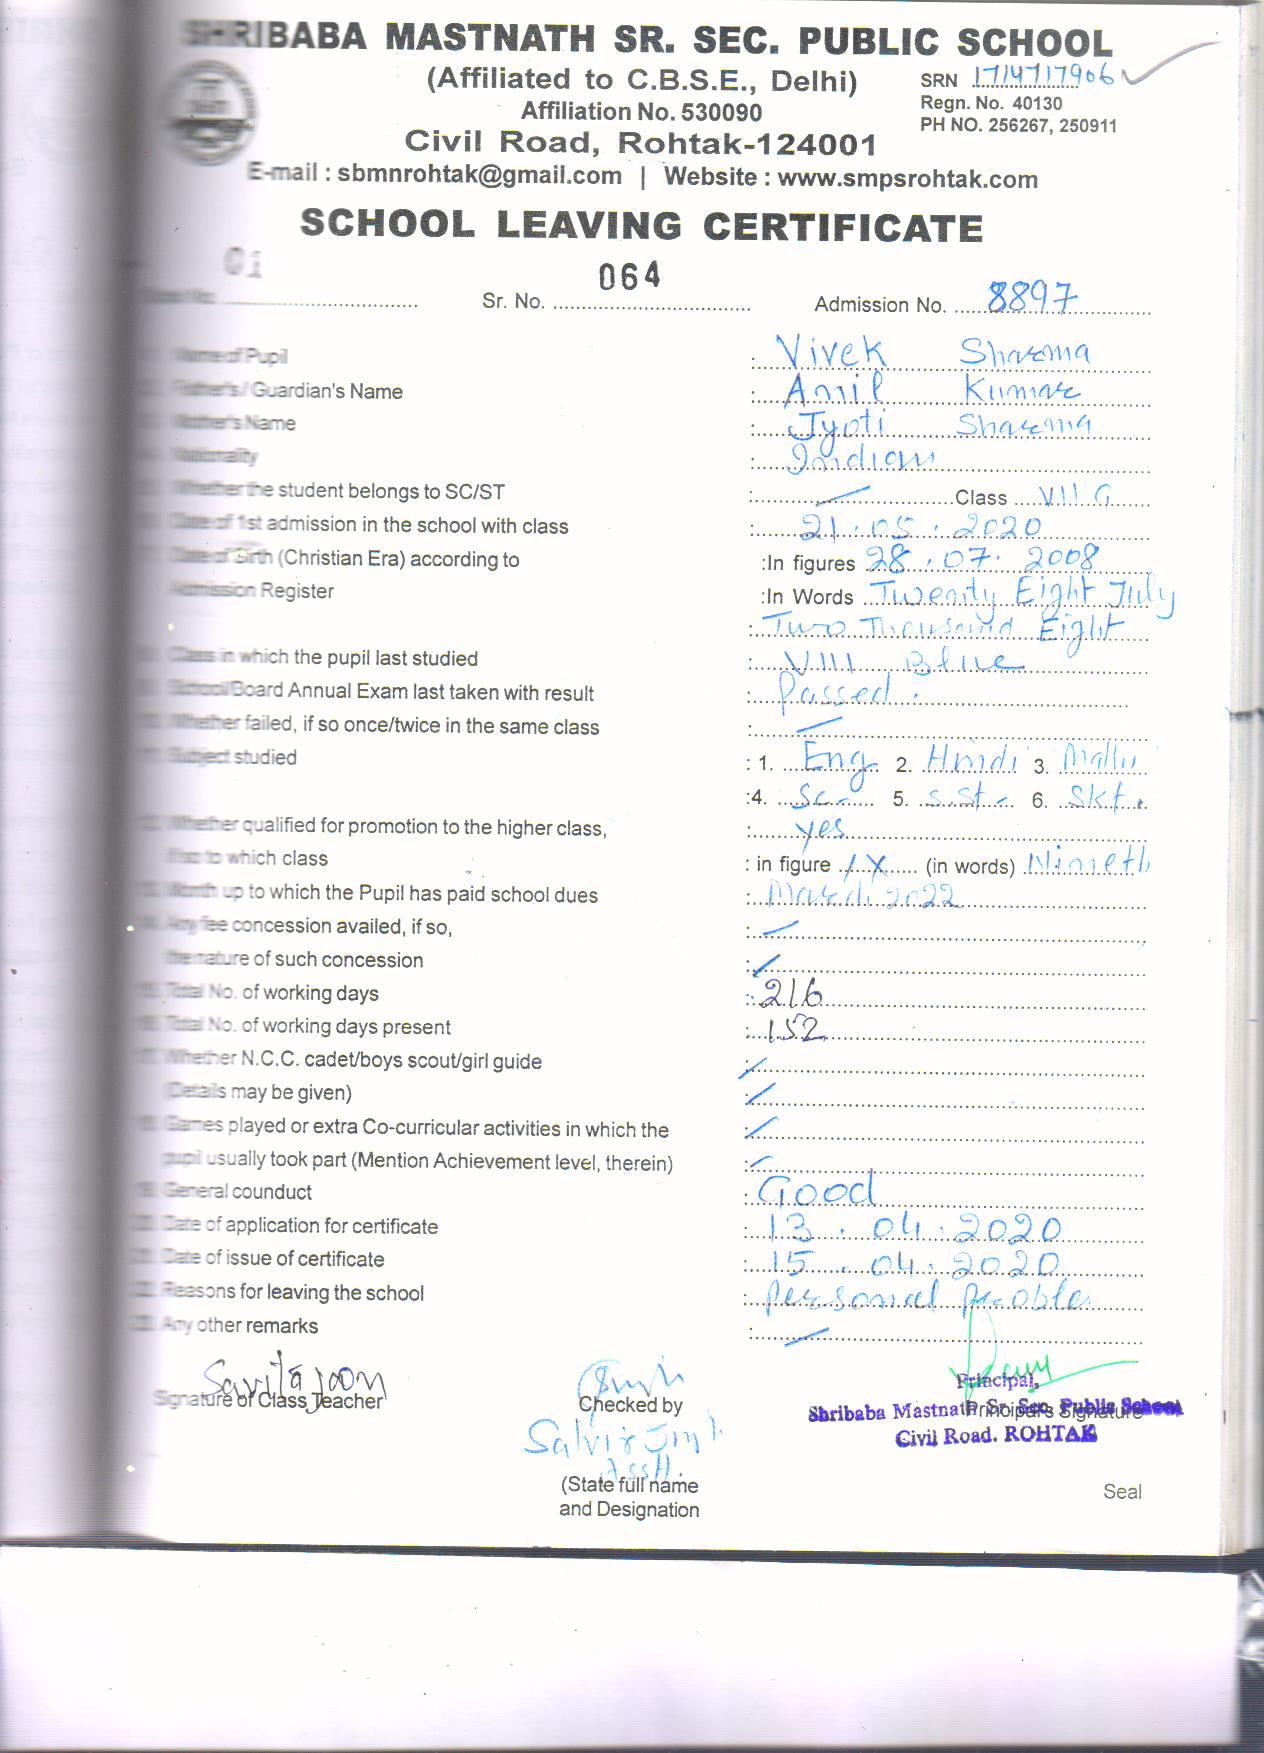 SHRIBABA MASTNATH SR. SEC. PUBLIC SCHOOL
(Affiliated to C.B.S.E., Delhi)
SRN 1714717906
Affiliation No. 530090
Regn. No. 40130
Civil Road, Rohtak-124001
PH NO. 256267, 250911
E-mail : sbmnrohtak@gmail.com | Website : www.smpsrohtak.com
SCHOOL LEAVING CERTIFICATE
01
064
Sr. No. Admission No. 8897
Name of Pupil : Vivek Sharma
Father's / Guardian's Name : Anil Kumar
Mother's Name : Jyoti Sharma
Nationality : Indian
Whether the student belongs to SC/ST : Class VII G
Date of 1st admission in the school with class : 21.05.2020
Date of Birth (Christian Era) according to :In figures 28.07.2008
Admission Register :In Words Twenty Eight July
: Two Thousand Eight
Class in which the pupil last studied : VIII Blue
School/Board Annual Exam last taken with result : Passed.
Whether failed, if so once/twice in the same class :
Subject studied : 1. Eng 2. Hindi 3. Maths
:4. Sc. 5. S.St. 6. Skt.
Whether qualified for promotion to the higher class, : yes
if so to which class : in figure IX (in words) Nineth
Month up to which the Pupil has paid school dues : March 2022
Any fee concession availed, if so, :
the nature of such concession :
Total No. of working days : 216
Total No. of working days present : 152
Whether N.C.C. cadet/boys scout/girl guide :
(Details may be given) :
Games played or extra Co-curricular activities in which the :
pupil usually took part (Mention Achievement level, therein) :
General counduct : Good
Date of application for certificate : 13.04.2020
Date of issue of certificate : 15.04.2020
Reasons for leaving the school : Personal Proble
Any other remarks :
Savita Joon
Signature of Class Teacher
Checked by
Principal,
Shribaba Mastnath Sr. Sec. Public School
Principal's Signature
Civil Road. ROHTAK
(State full name
and Designation
Seal